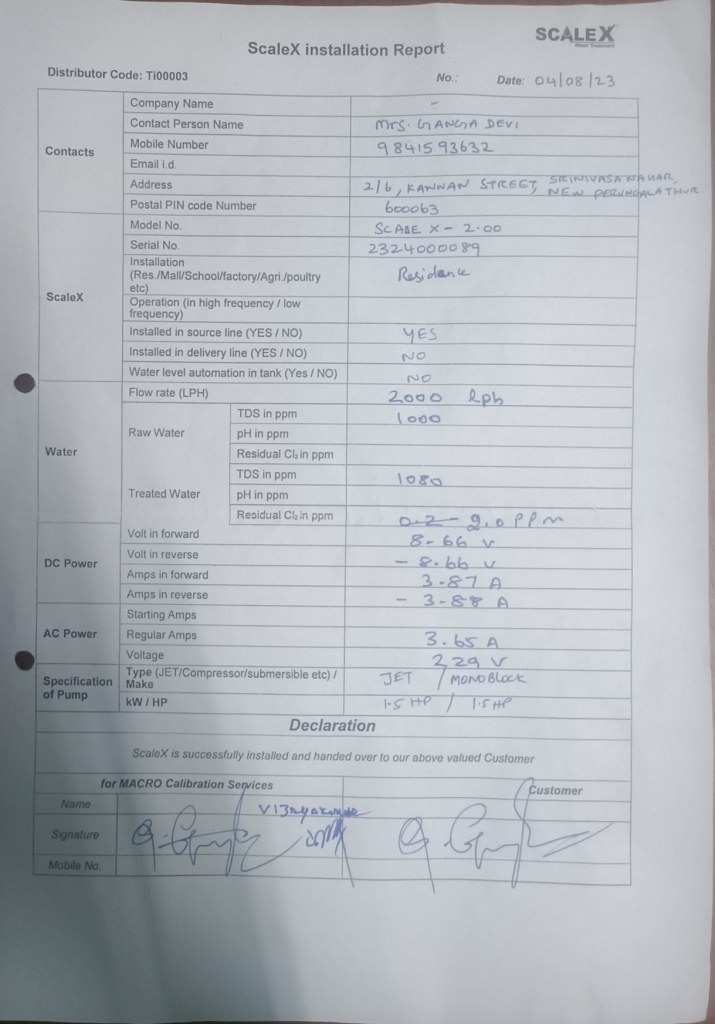 SCALEX
Water Treatment
ScaleX installation Report
Distributor Code: Ti00003 No.: Date: 04/08/23
Contacts
Company Name -
Contact Person Name Mrs. GANGA DEVI
Mobile Number 9841593632
Email i.d.
Address 2/6, KANNAN STREET, SRINIVASA NAGAR, NEW PERUNGALATHUR
Postal PIN code Number 600063
ScaleX
Model No. SCALE X - 2.00
Serial No. 2324000089
Installation
(Res./Mall/School/factory/Agri./poultry
etc) Residence
Operation (in high frequency / low
frequency)
Installed in source line (YES / NO) YES
Installed in delivery line (YES / NO) NO
Water level automation in tank (Yes / NO) NO
Water
Flow rate (LPH) 2000 lph
Raw Water
TDS in ppm 1000
pH in ppm
Residual Cl₂ in ppm
Treated Water
TDS in ppm 1080
pH in ppm
Residual Cl₂ in ppm 0.2 - 2.0 PPm
DC Power
Volt in forward 8.66 v
Volt in reverse - 8.66 v
Amps in forward 3.87 A
Amps in reverse - 3.88 A
AC Power
Starting Amps
Regular Amps 3.65 A
Voltage 229 V
Specification
of Pump
Type (JET/Compressor/submersible etc) /
Make JET / MONOBLOCK
kW / HP 1.5 HP / 1.5 HP
Declaration
ScaleX is successfully installed and handed over to our above valued Customer
for MACRO Calibration Services Customer
Name
Signature
Mobile No.